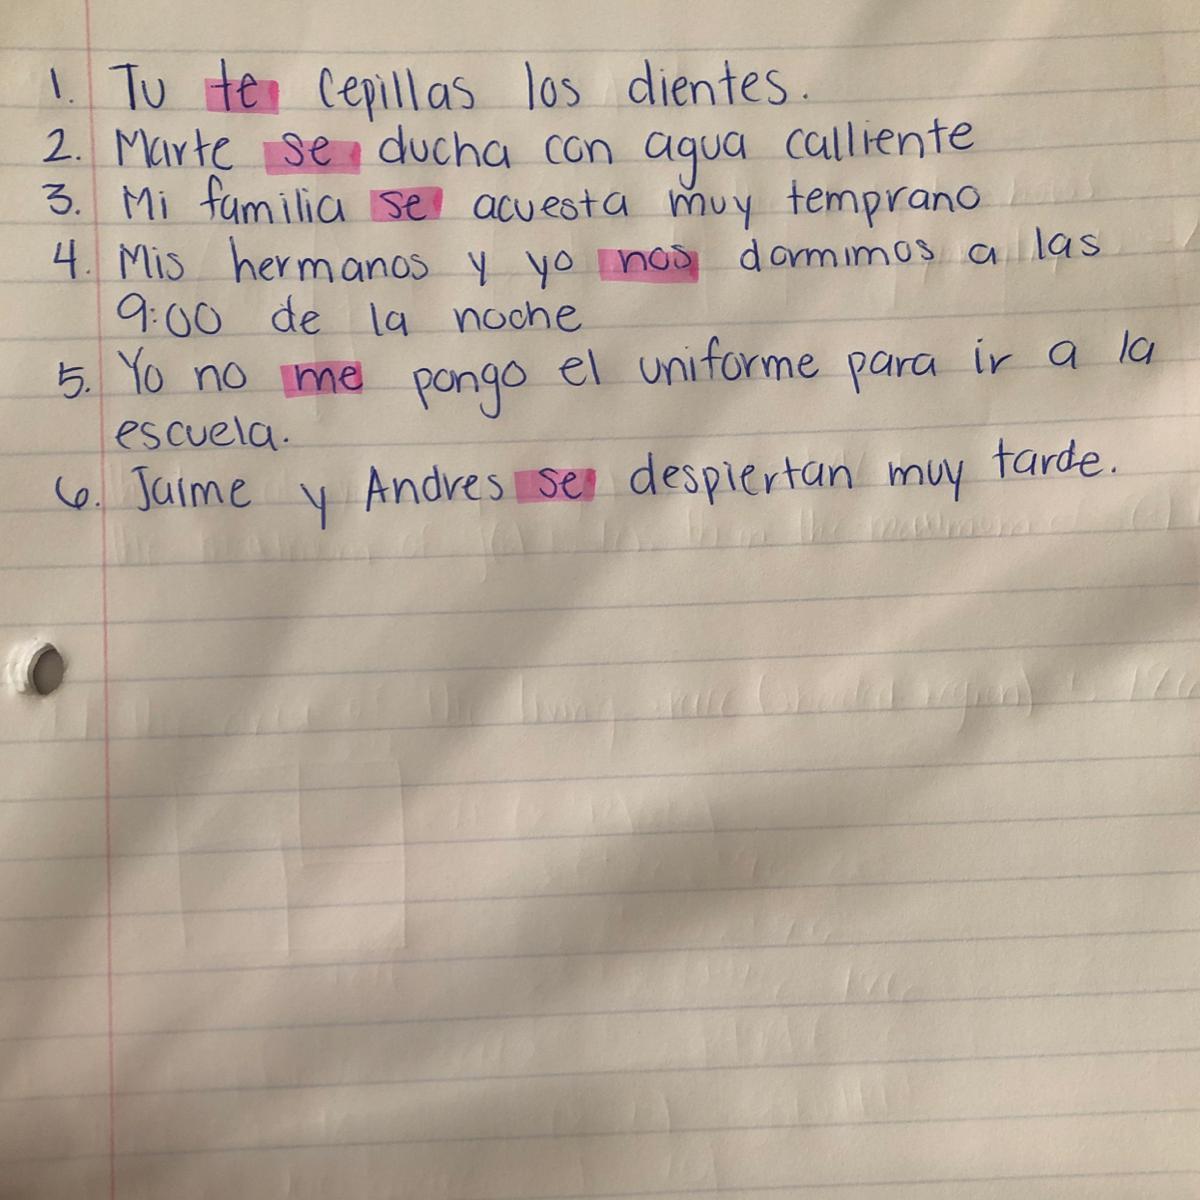 1. Tu te cepillas los dientes.
2. Marte se ducha con agua calliente
3. Mi familia se acuesta muy temprano
4. Mis hermanos y yo nos dormimos a las
9:00 de la noche
5. Yo no me pongo el uniforme para ir a la
escuela.
6. Jaime y Andres se despiertan muy tarde.